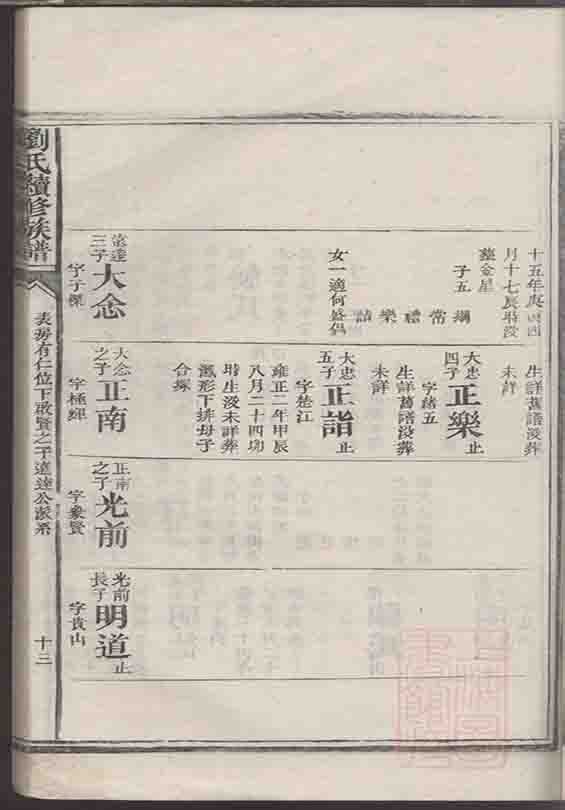 十五年庚申四
月十七辰時沒
葬金星
子五
綱常禮樂詰
女一適何盛侶
達達三子大念
字子傑
生詳舊譜沒葬
未詳
大忠四子正樂止
字緒五
生詳舊譜沒葬
未詳
大忠五子正詣止
字楚江
雍正二年甲辰
八月二十四卯
時生沒未詳葬
瓢形下排母子
合塚
大念之子正南
字極輝
正南之子光前
字象賢
光前長子明道止
字貴山
劉氏續修族譜
表房有仁位下啟賢之子達達公派系
十三